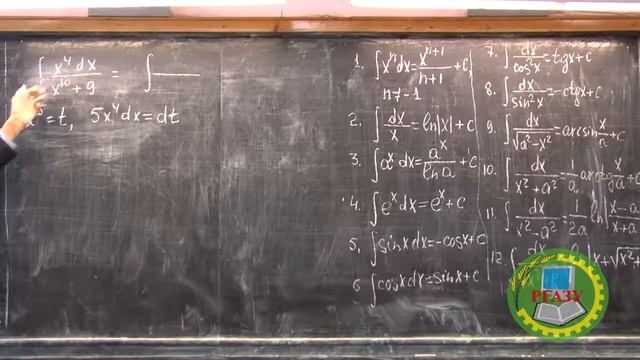 ∫ x⁴dx / (x¹⁰ + 9) = ∫
x⁵ = t, 5x⁴dx = dt
1. ∫ xⁿdx = xⁿ⁺¹ / (n+1) + C,
n ≠ -1
2. ∫ dx / x = ln|x| + C
3. ∫ aˣ dx = aˣ / ln a + C
4. ∫ eˣ dx = eˣ + C
5. ∫ sinx dx = -cosx + C
6 ∫ cosx dx = sinx + C
7. ∫ dx / cos²x = tgx + C
8. ∫ dx / sin²x = -ctgx + C
9. ∫ dx / √(a² - x²) = arcsin x/a + C
10. ∫ dx / (x² + a²) = 1/a arctg x/a + C
11. ∫ dx / (x² - a²) = 1/2a ln |x-a / x+a
12. ∫ dx |x + √x² +
РГАЗУ